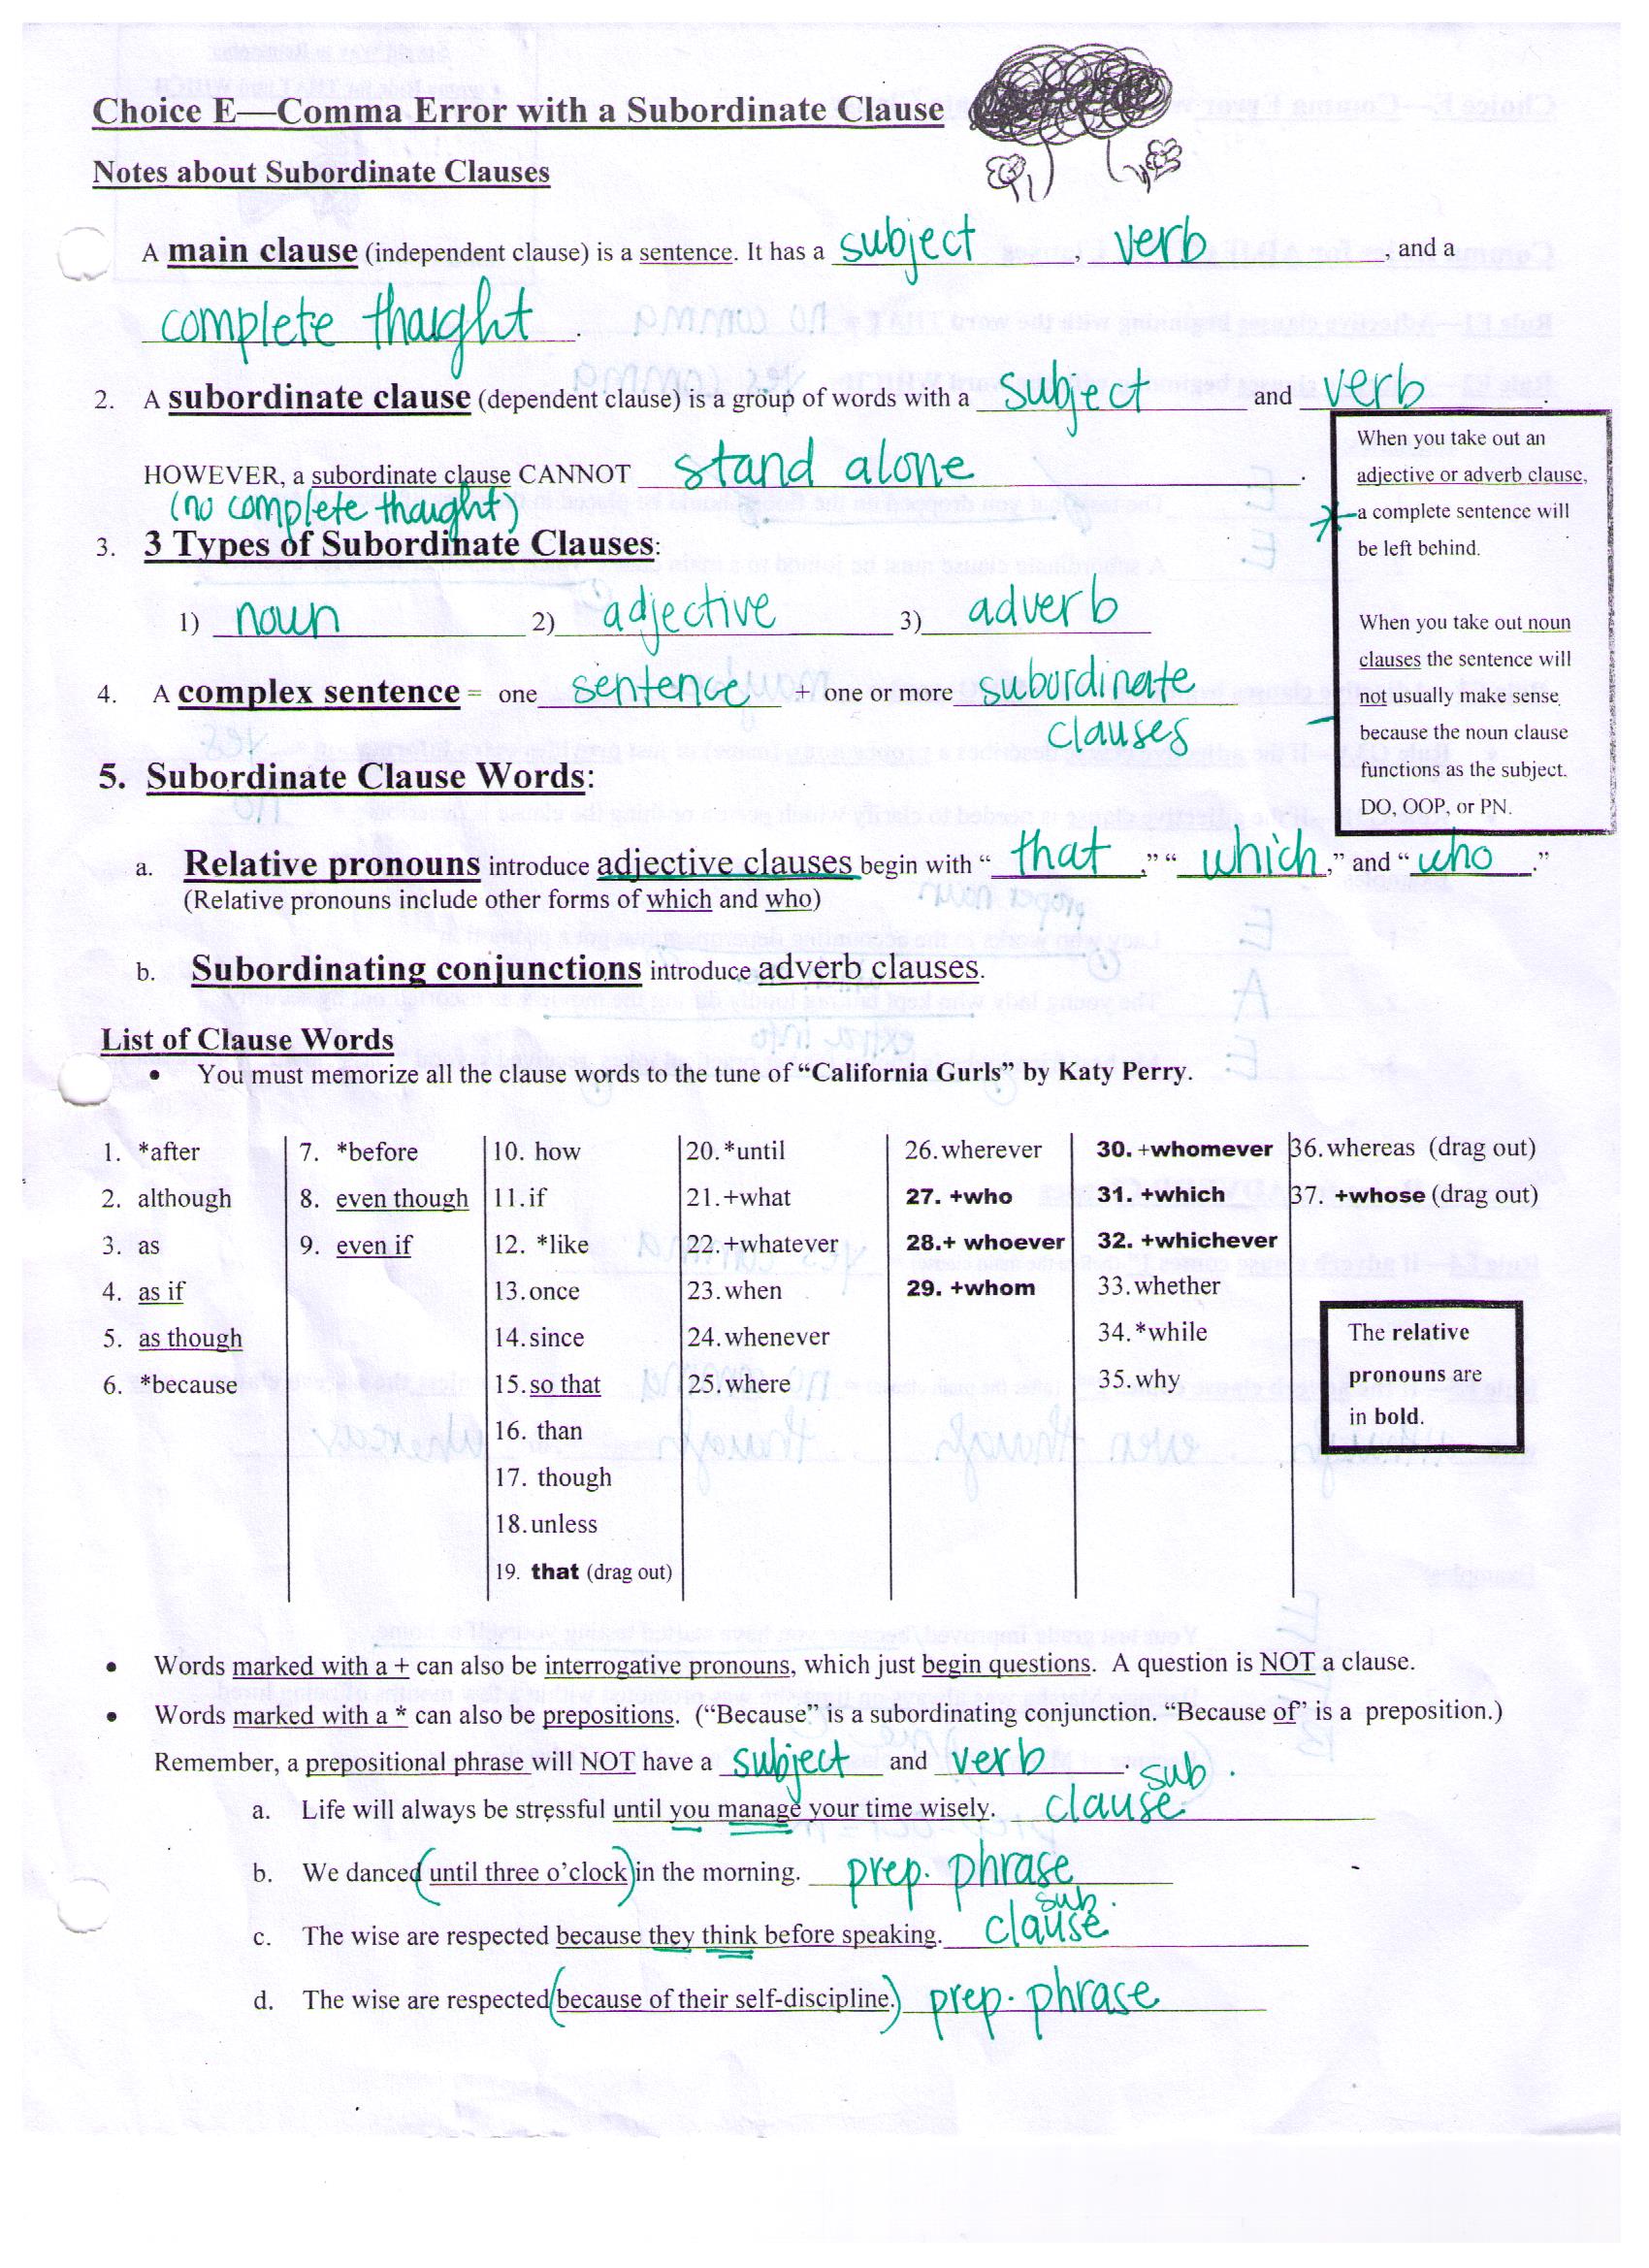 Choice E—Comma Error with a Subordinate Clause
Notes about Subordinate Clauses
A main clause (independent clause) is a sentence. It has a subject, verb, and a
complete thaight.
2. A subordinate clause (dependent clause) is a group of words with a subject and verb.
HOWEVER, a subordinate clause CANNOT stand alone.
(no complete thaight)
3. 3 Types of Subordinate Clauses:
1) noun 2) adjective 3) adverb
4. A complex sentence = one sentence + one or more subordinate
clauses
When you take out an
adjective or adverb clause,
a complete sentence will
be left behind.
When you take out noun
clauses the sentence will
not usually make sense
because the noun clause
functions as the subject.
DO, OOP, or PN.
5. Subordinate Clause Words:
a. Relative pronouns introduce adjective clauses begin with “that,” “which,” and “who.”
(Relative pronouns include other forms of which and who)
b. Subordinating conjunctions introduce adverb clauses.
List of Clause Words
• You must memorize all the clause words to the tune of “California Gurls” by Katy Perry.
1. *after
2. although
3. as
4. as if
5. as though
6. *because
7. *before
8. even though
9. even if
10. how
11. if
12. *like
13. once
14. since
15. so that
16. than
17. though
18. unless
19. that (drag out)
20. *until
21. +what
22. +whatever
23. when
24. whenever
25. where
26. wherever
27. +who
28.+ whoever
29. +whom
30. +whomever
31. +which
32. +whichever
33. whether
34. *while
35. why
36. whereas (drag out)
37. +whose (drag out)
The relative
pronouns are
in bold.
• Words marked with a + can also be interrogative pronouns, which just begin questions. A question is NOT a clause.
• Words marked with a * can also be prepositions. (“Because” is a subordinating conjunction. “Because of” is a preposition.)
Remember, a prepositional phrase will NOT have a subject and verb.
a. Life will always be stressful until you manage your time wisely. sub. clause
b. We danced (until three o’clock) in the morning. prep. phrase
c. The wise are respected because they think before speaking. sub. clause
d. The wise are respected (because of their self-discipline.) prep. phrase